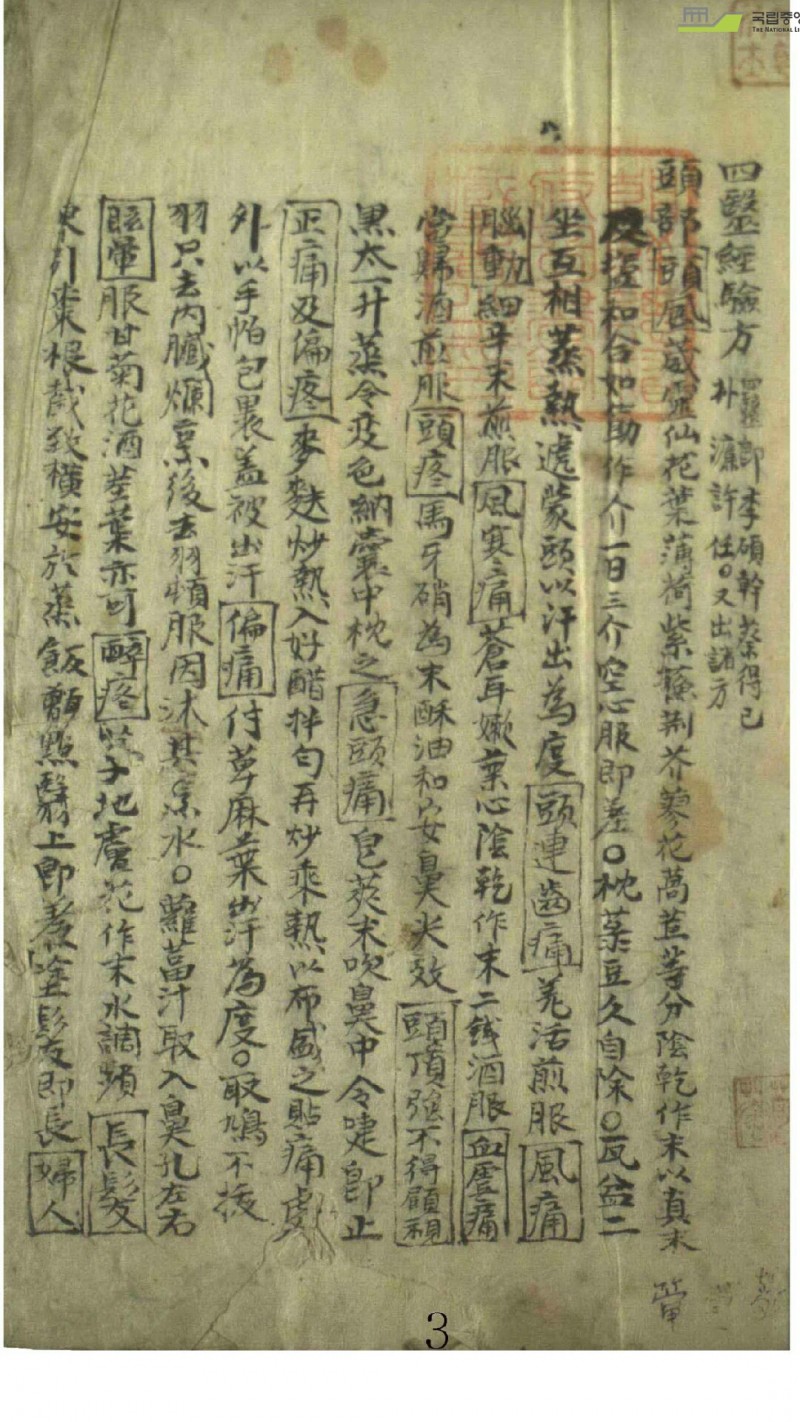 四醫經驗方
李碩幹 蔡得己
朴濂 許任〇又出諸方
頭部 頭風 葳灵仙花葉薄荷紫蘓荆芥蓼花萵苣等分陰乾作末以真末
和合如 作介一日三介空心服即差〇枕菉豆久自除〇瓦盆二
坐互相蒸熱遞蒙頭以汗出為度 頭連齒痛 羌活煎服 風痛
腦動 細辛末煎服 風寒痛 蒼耳嫩葉心陰乾作末二戔酒服 血虛痛
當歸酒煎服 頭疼 馬牙硝為末酥油和安鼻尖效 頭項强不得顧視
黑太一升蒸令变色納囊中枕之 急頭痛 皂莢末吹鼻中令嚏即止
正痛及偏疼 麥麩炒熱入好醋拌勻再炒乘熱以布盛之貼痛處
外以手帕包裹盖被出汗 偏痛 付萆麻葉出汗為度〇取鳩不拔
羽只去内臟爛烹後去羽頓服因沐其烹水〇蘿葍汁取入鼻孔左右
眩暈 服甘菊花酒茎葉亦可 醉疼 子地膚花作末水調頻 長髮
東引棗根截 橫安於蒸飯甑 上即 塗髮即長 婦人
3
국립중앙
THE NATIONAL LI